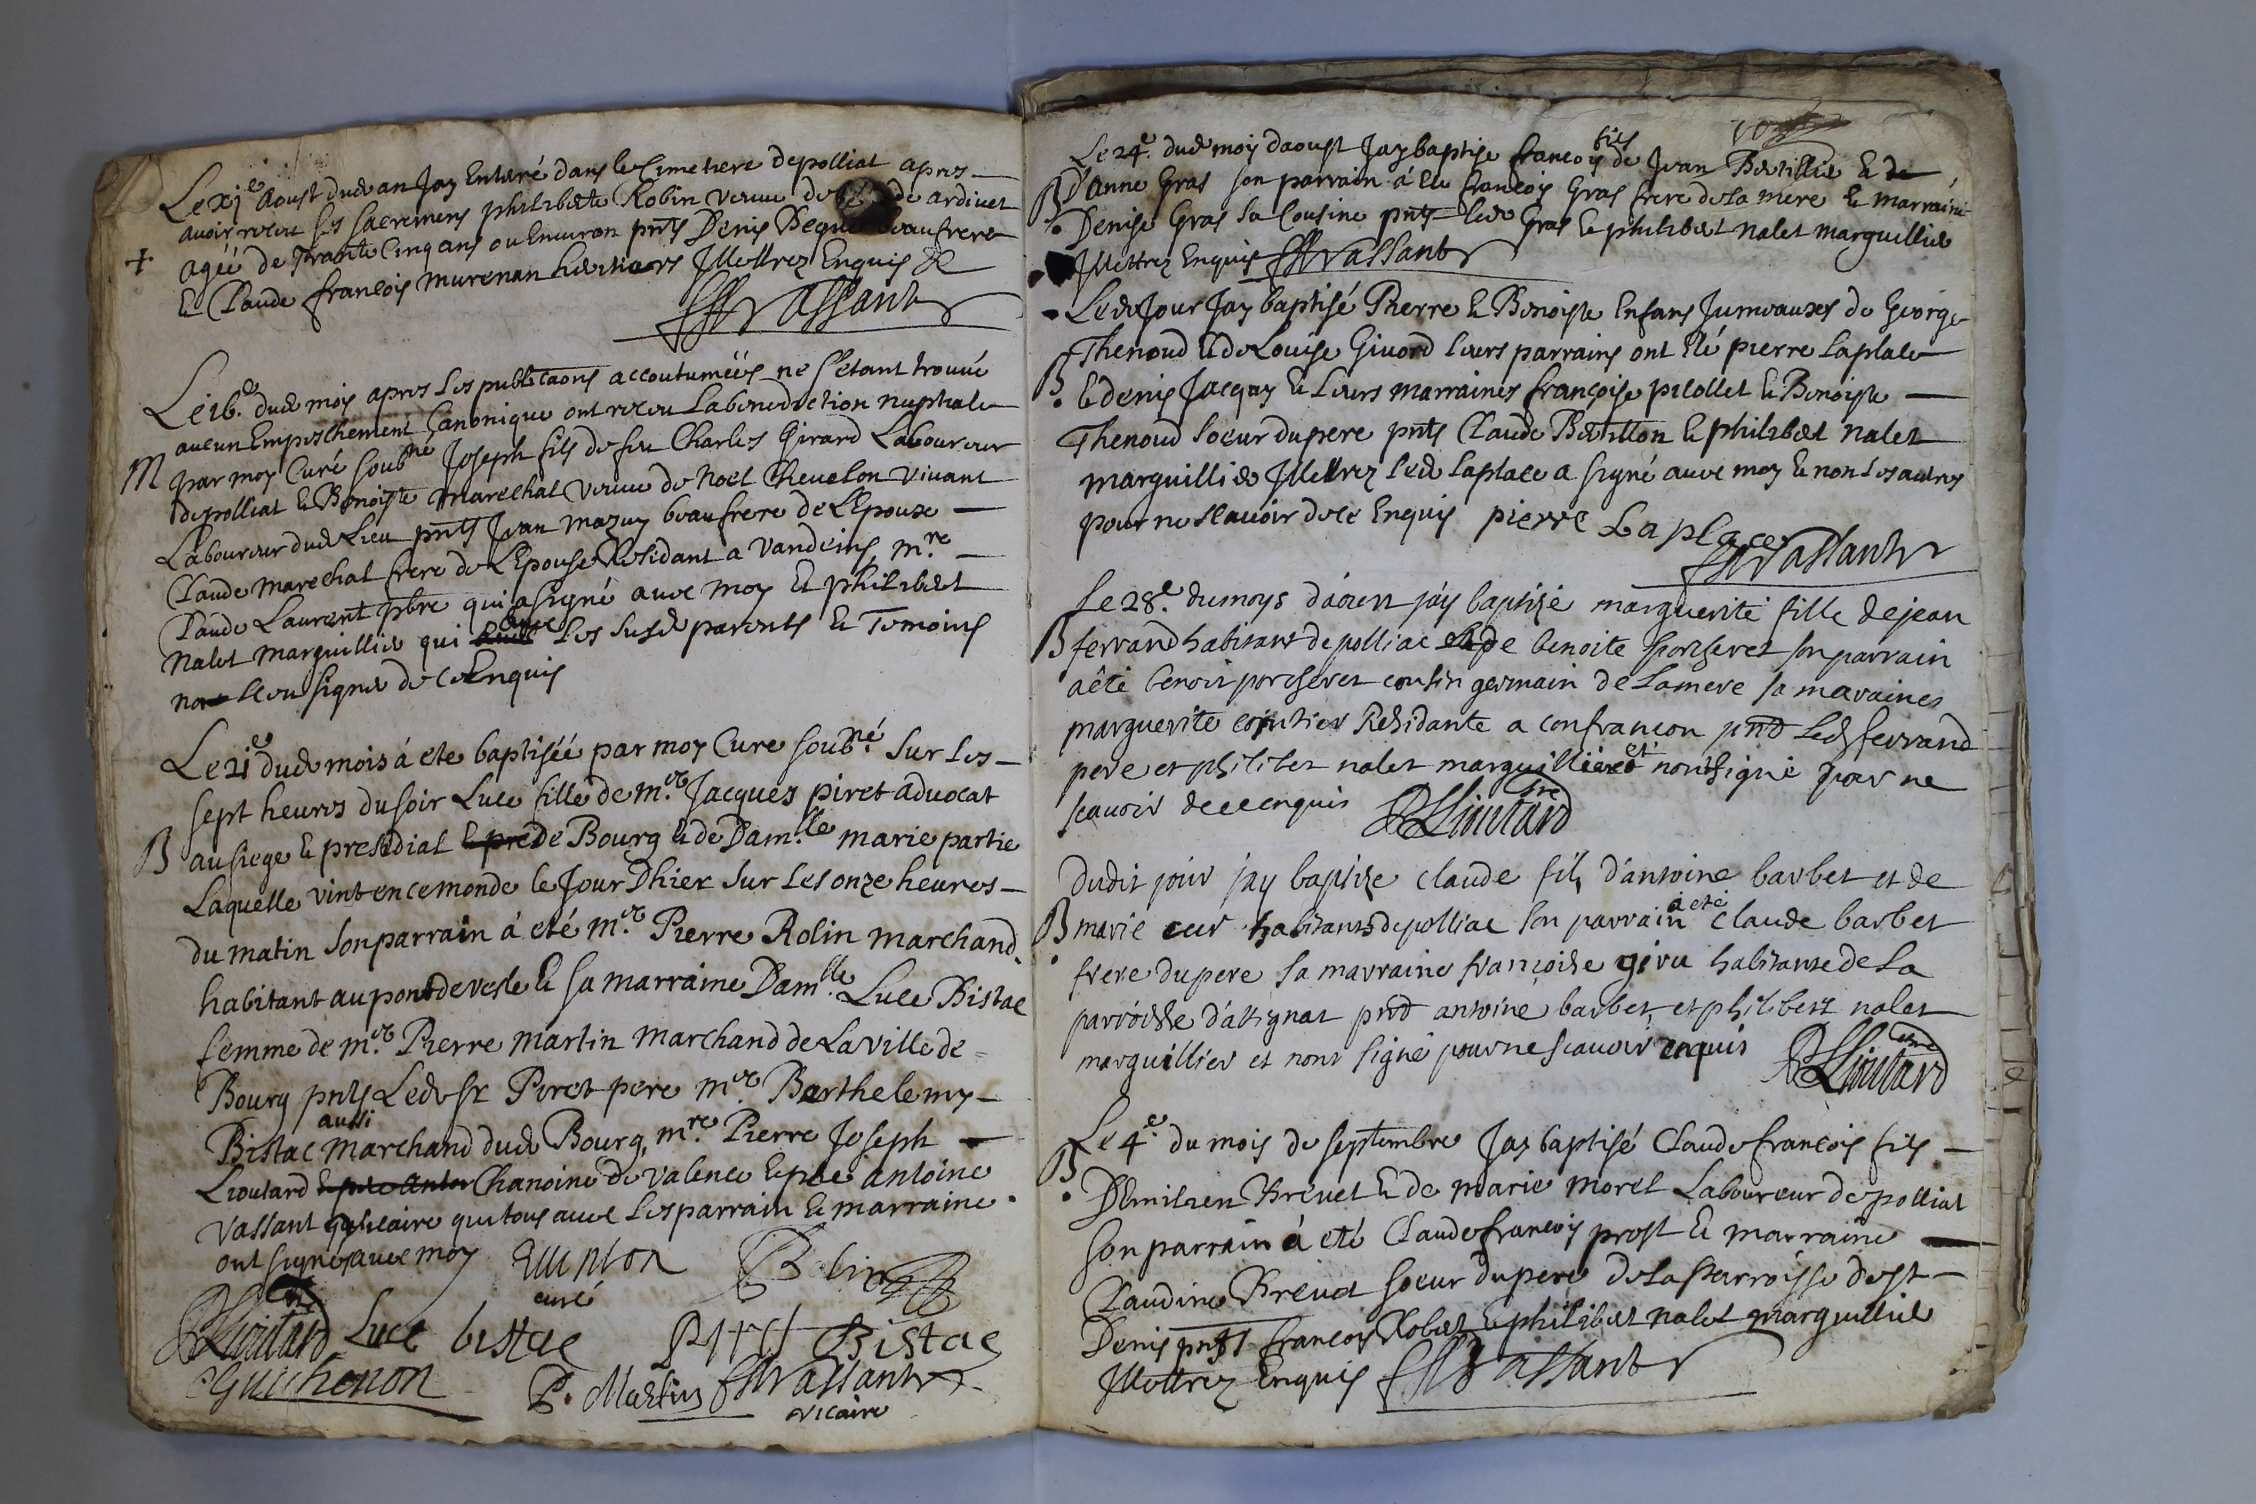 Le xj.e Aoust dud an Jay Enterré dans le Cimetiere depolliat apres
avoir receu les sacremens philiberte Robin veuve de ardivet
+ agée de Trante Cinq ans ou Environ pnts Denis beaufrere
& Claude francois murenan heritiers Illettrez Enquis
Vassant
Le 16.e dud mois apres les publicaons accoutumées ne s'etant trouvé
aucun Empeschement Canonique ont receu La benediction nuptiale
M par moy Curé soubné Joseph fils de feu Charles Girard Laboureur
depolliat & Benoiste marechal veuve de Noel Chevelon vivant
Laboureur dud Lieu pnts Jean mazuy beaufrere de L'Epouse
Claude marechal frere de L'Epouse Residant a vandeins, m.re
Claude Laurent pbre qui a signé avec moy & philibert
Nalet marguillier qui avec Les susd parents & Temoins
sceu signer de ce Enquis
Le 21e dud mois á eté baptisée par moy Curé soubné sur les
sept heures du soir Luce fille de m.e Jacques piret advocat
B au siege & presidial de Bourg & de Dam.lle marie partie
Laquelle vint en ce monde le Jour Dhier sur les onze heures
du matin son parrain á eté m.e Pierre Rolin marchand
habitant au pontdevesle & sa marraine Dam.lle Luce Bistac
femme de m.e Pierre martin marchand de La ville de
Bourg pnts Led sr Piret pere m.e Barthelemy
aussi
Bistac marchand dud Bourg, m.re Pierre Joseph
Lioutard Chanoine de valence & antoine
vassant vicaire qui tous avec Les parrain & marraine
ont signé avec moy
curé
Lioutard Luce bistac Piret Bistac
Guichenon P. Martin Vassant
vicaire
Le 24.e dud moy daoust Jay baptisé francois fils de Jean & de
B D'anne Gras son parrain á eté francois Gras frere de la mere & marraine
Denise Gras sa Cousine pnts led Gras & philibert nalet marguillier
Illettrez Enquis Vassant
Led Jour Jay baptisé Pierre & Benoiste Enfans Jumeaux de George
Thenoud & de Louise Givord leurs parrains ont eté pierre Laplace
B & denis Jacquay & Leurs marraines francoise pilollet & Benoiste
Thenoud soeur du pere pnts Claude & philibert Nalet
marguillier Illettrez led Laplace a signé avec moy & non les autres
pour ne scavoir de ce Enquis pierre Laplace
Vassant
Le 28.e du moys d'aoust jay baptizé marguerite fille de jean
B ferrand habitant de polliac de benoite porcheret son parrain
a été benoit porcheret cousin germain de La mere sa maraine
marguerite Residante a confrancon pnd Led ferrand
pere et philibert nalet marguillier et nont signé pour ne
scavoir de ce enquis Lioutard
Dudit jour jay baptize claude fils d'antoine barbet et de
B marie cur habitants de polliac son parrain a eté claude barbet
frere du pere sa marraine francoise habitante de La
parroisse d'attignat pnd antoine barbet et philibert nalet
marguillier et nont signé pour ne scavoir enquis Lioutard
Le 4.e du mois de septembre Jay baptisé Claude francois fils
B Brevet & de marie morel Laboureur de polliat
son parrain á eté Claude francois prost & marraine
Claudine Brevet soeur du pere de La Parroisse de st
Denis pnts francois Robert & philibert nalet marguillier
Illettrez Enquis Vassant